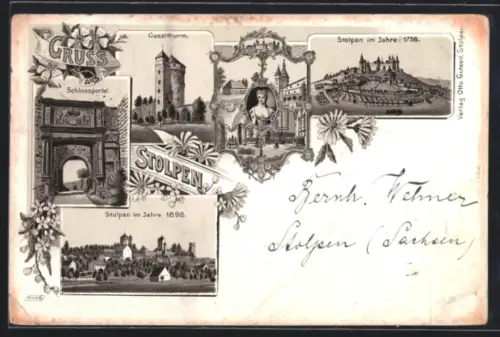 GRUSS
aus
Coselthurm.
Stolpen im Jahre 1738.
Schlossportal
STOLPEN.
Stolpen im Jahre 1898.
Verlag Otto Gutzeit, Stolpen.
Bernh. Wehner
Stolpen (Sachsen)